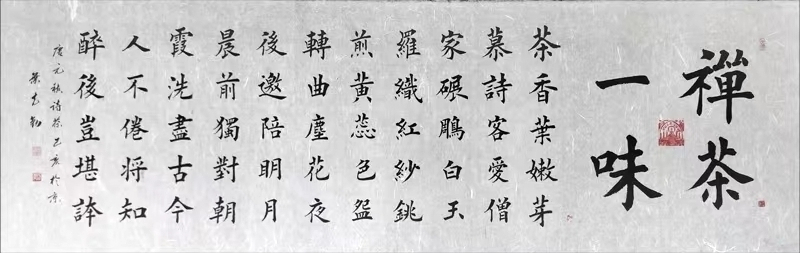 禪茶
一味
茶香葉嫩芽
慕詩客愛僧
家碾鵰白玉
羅織紅紗銚
煎黃蕊色盌
轉曲塵花夜
後邀陪明月
晨前獨對朝
霞洗盡古今
人不倦將知
醉後豈堪誇
唐元稹詩茶己亥於京